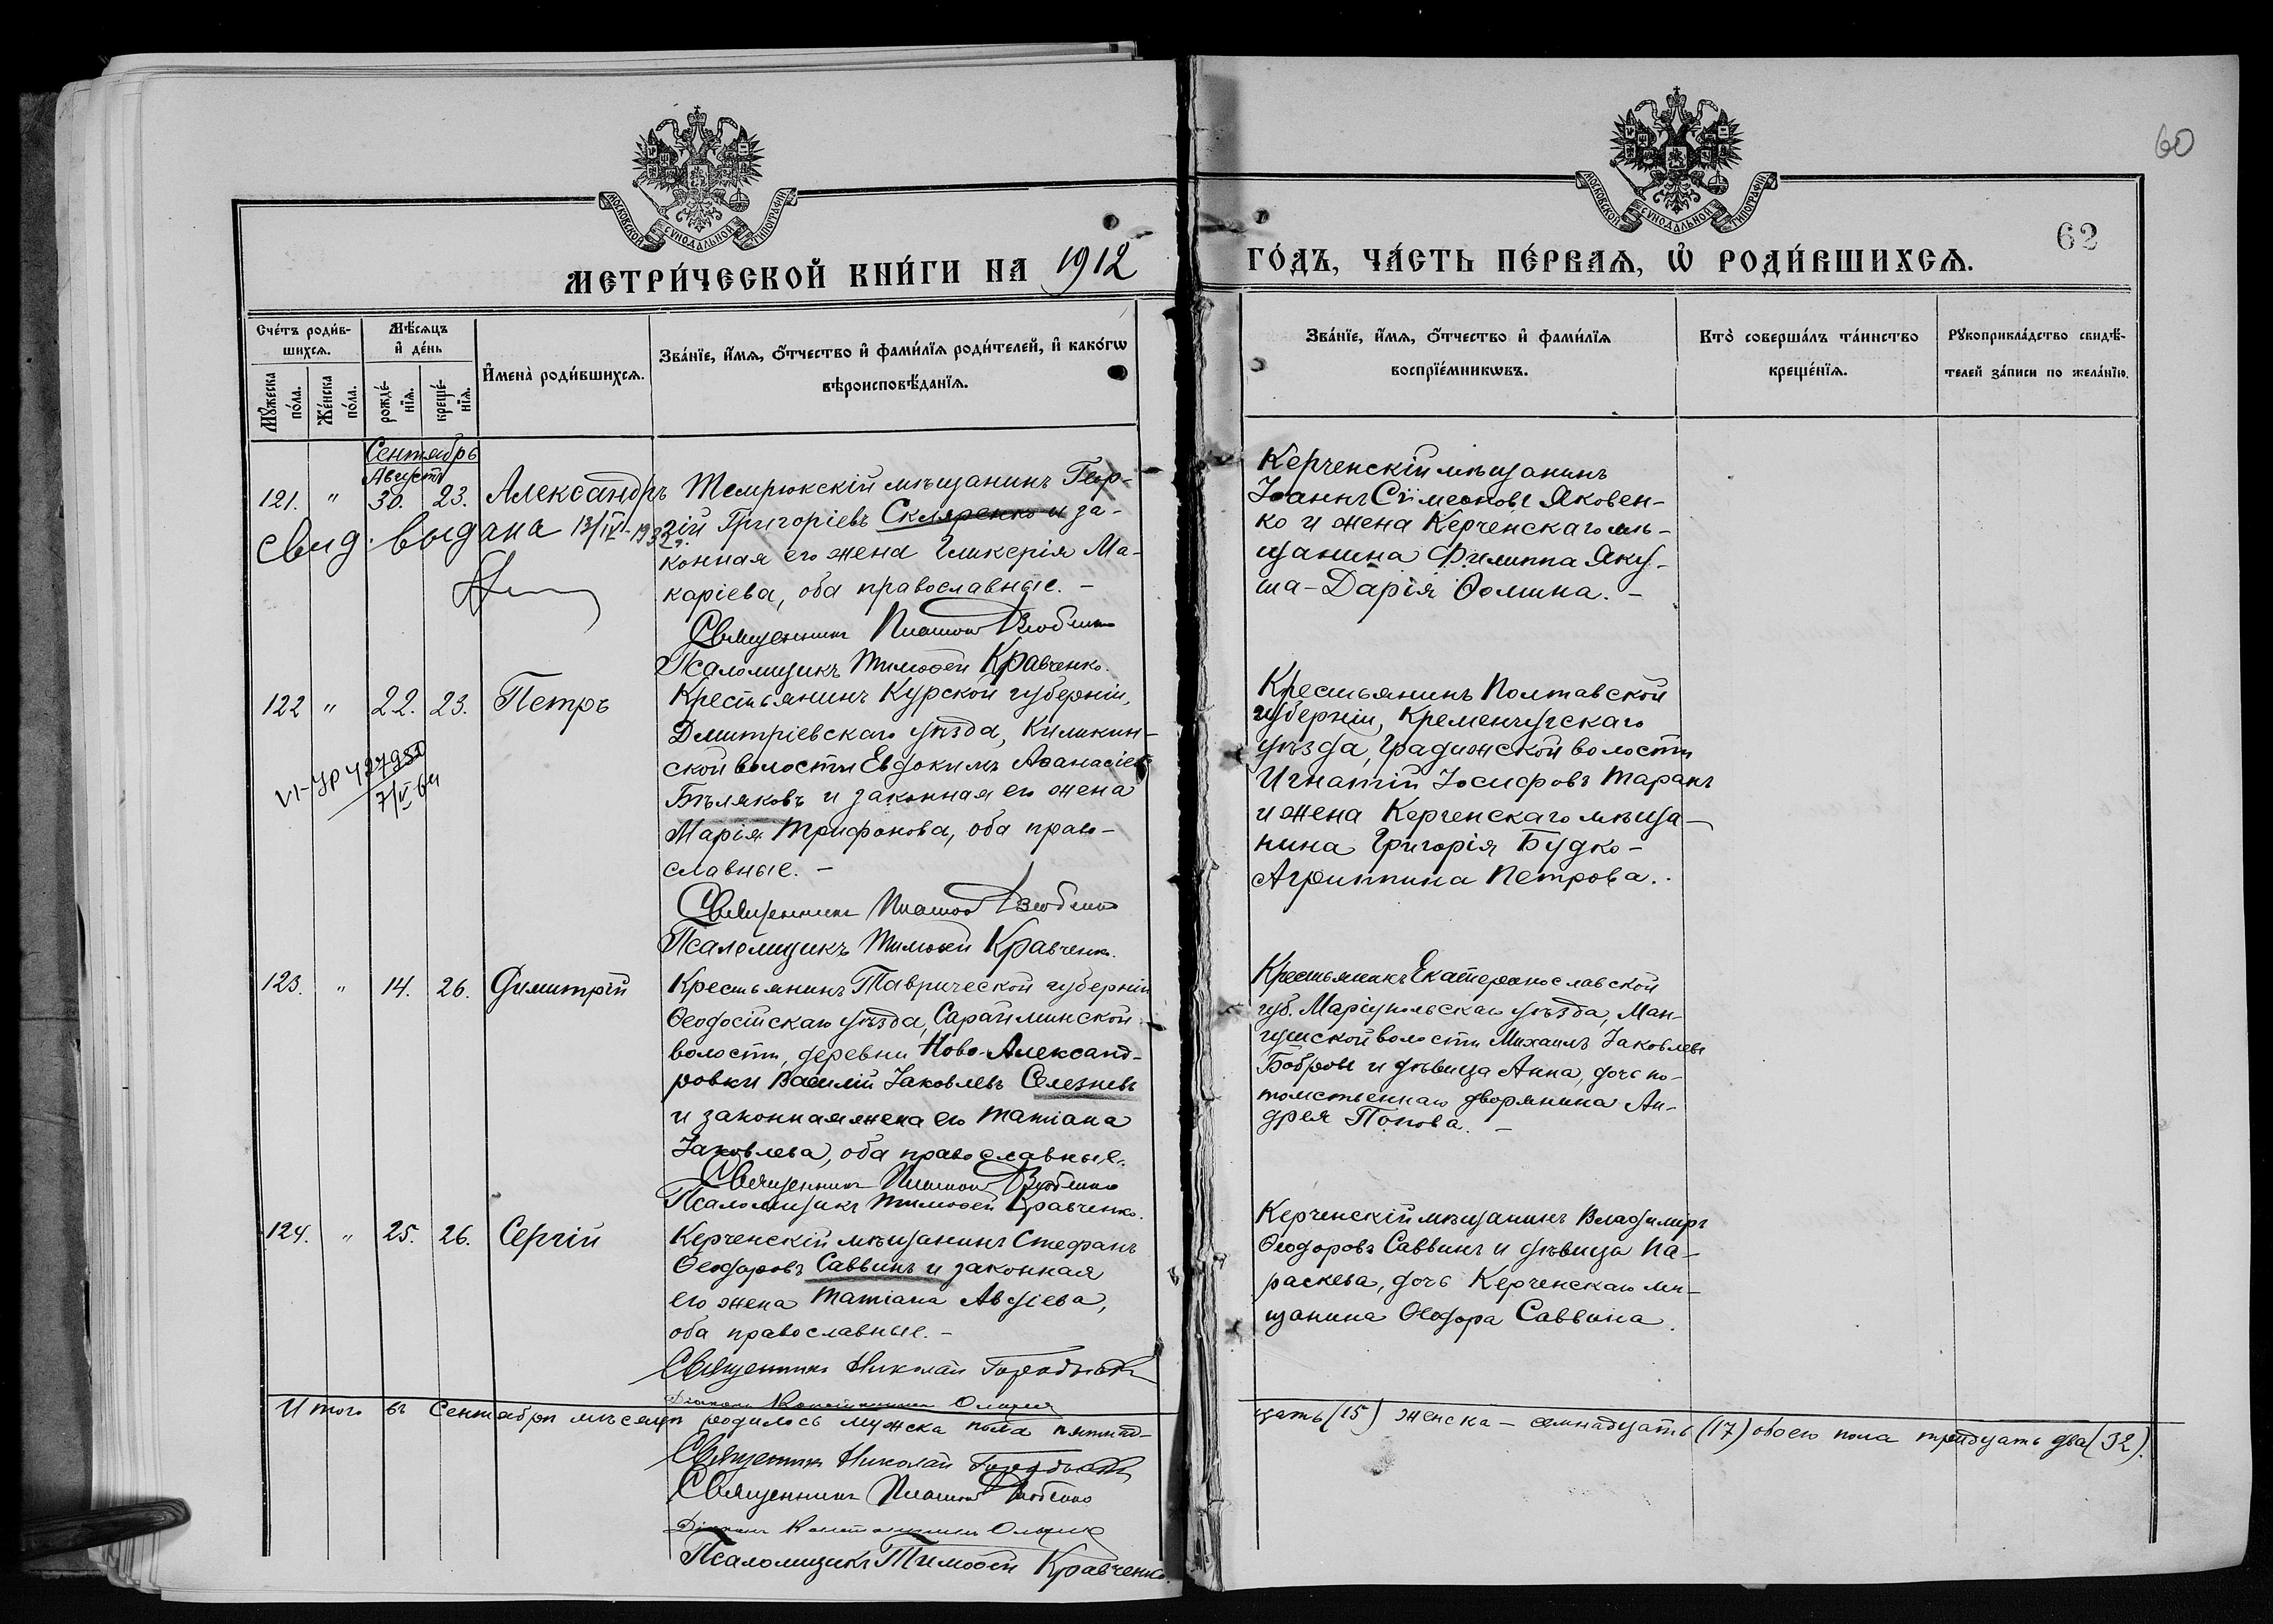 60
62
МОСКОВСКОЙ СѴНОДАЛЬНОЙ ТИПОГРАФІИ
МОСКОВСКОЙ СѴНОДАЛЬНОЙ ТИПОГРАФІИ
МЕТРИ́ЧЕСКОЙ КНИ́ГИ НА 1912
ГО́ДЪ, ЧА́СТЬ ПЕ́РВАѦ, Ѡ҆ РОДИ́ВШИХСѦ.
Сче́тъ роди́в-
шихсѧ.
Мꙋ́жеска по́ла.
Же́нска по́ла.
Мѣ́сѧцъ
и҆ де́нь
рожде́-
нїѧ.
креще́-
нїѧ.
И҆мена̀ роди́вшихсѧ.
Зва́нїе, и҆́мѧ, ѻ҆́тчество и҆ фами́лїѧ роди́телей, и҆ како́гѡ
вѣроисповѣ́данїѧ.
Зва́нїе, и҆́мѧ, ѻ҆́тчество и҆ фами́лїѧ
воспрїе́мникѡвъ.
Кто̀ соверша́лъ та́инство
креще́нїѧ.
Рꙋкоприкла́дство свидѣ́-
телей за́писи по жела́нїю.
Сентябрь
Августъ
121. " 30. 23. Александръ
Темрюкскій мѣщанинъ Геор-
гій Григоріевъ Скляренко и за-
конная его жена Гликерія Ма-
каріева, оба православные. –
Священникъ Платон
Псаломщикъ Тимофей Кравченко.
Свид. выдана 13/IV-1932.
Керченскій мѣщанинъ
Іоаннъ Сѵмеоновъ Яковен-
ко и жена Керченскаго мѣ-
щанина Филиппа Яку-
ша – Дарія Ѳомина. –
122 " 22. 23. Петръ
VI-ЯР 427980
7/V 64
Крестьянинъ Курской губерніи,
Дмитріевскаго уѣзда, Киликин-
ской волости Евдокимъ Аѳанасіевъ
Бѣляковъ и законная его жена
Марія Трифонова, оба право-
славные. –
Священникъ Платон
Псаломщикъ Тимофей Кравченко.
Крестьянинъ Полтавской
губерніи, Кременчугскаго
уѣзда, Градижской волости
Игнатій Іосифовъ Таранъ
и жена Керченскаго мѣща-
нина Григорія Будко –
Агриппина Петрова.
123. " 14. 26. Димитрій
Крестьянинъ Таврической губерніи
Ѳеодосійскаго уѣзда, Сарайминской
волости, деревни Ново-Александ-
ровки Василій Іаковлевъ Селезневъ
и законная жена его Татіана
Іаковлева, оба православные.
Священникъ Платон
Псаломщикъ Тимофей Кравченко.
Крестьянинъ Екатеринославской
губ. Маріупольскаго уѣзда, Ман-
гушской волости Михаилъ Іаковлевъ
Бобровъ и дѣвица Анна, дочь по-
томственнаго дворянина Ан-
дрея Попова. –
124. " 25. 26. Сергій
Керченскій мѣщанинъ Стефанъ
Ѳеодоровъ Саввинъ и законная
его жена Татіана Авдіева,
оба православные. –
Священникъ Николай
Діаконъ Константинъ
Керченскій мѣщанинъ Владиміръ
Ѳеодоровъ Саввинъ и дѣвица Па-
раскева, дочь Керченскаго мѣ-
щанина Ѳеодора Саввина.
Итого въ Сентябрѣ мѣсяцѣ родилось мужска пола пятнад-
цать (15) женска – семнадцать (17) обоего пола тридцать два (32).
Священникъ Николай
Священникъ Платон
Діаконъ Константинъ
Псаломщикъ Тимофей Кравченко.